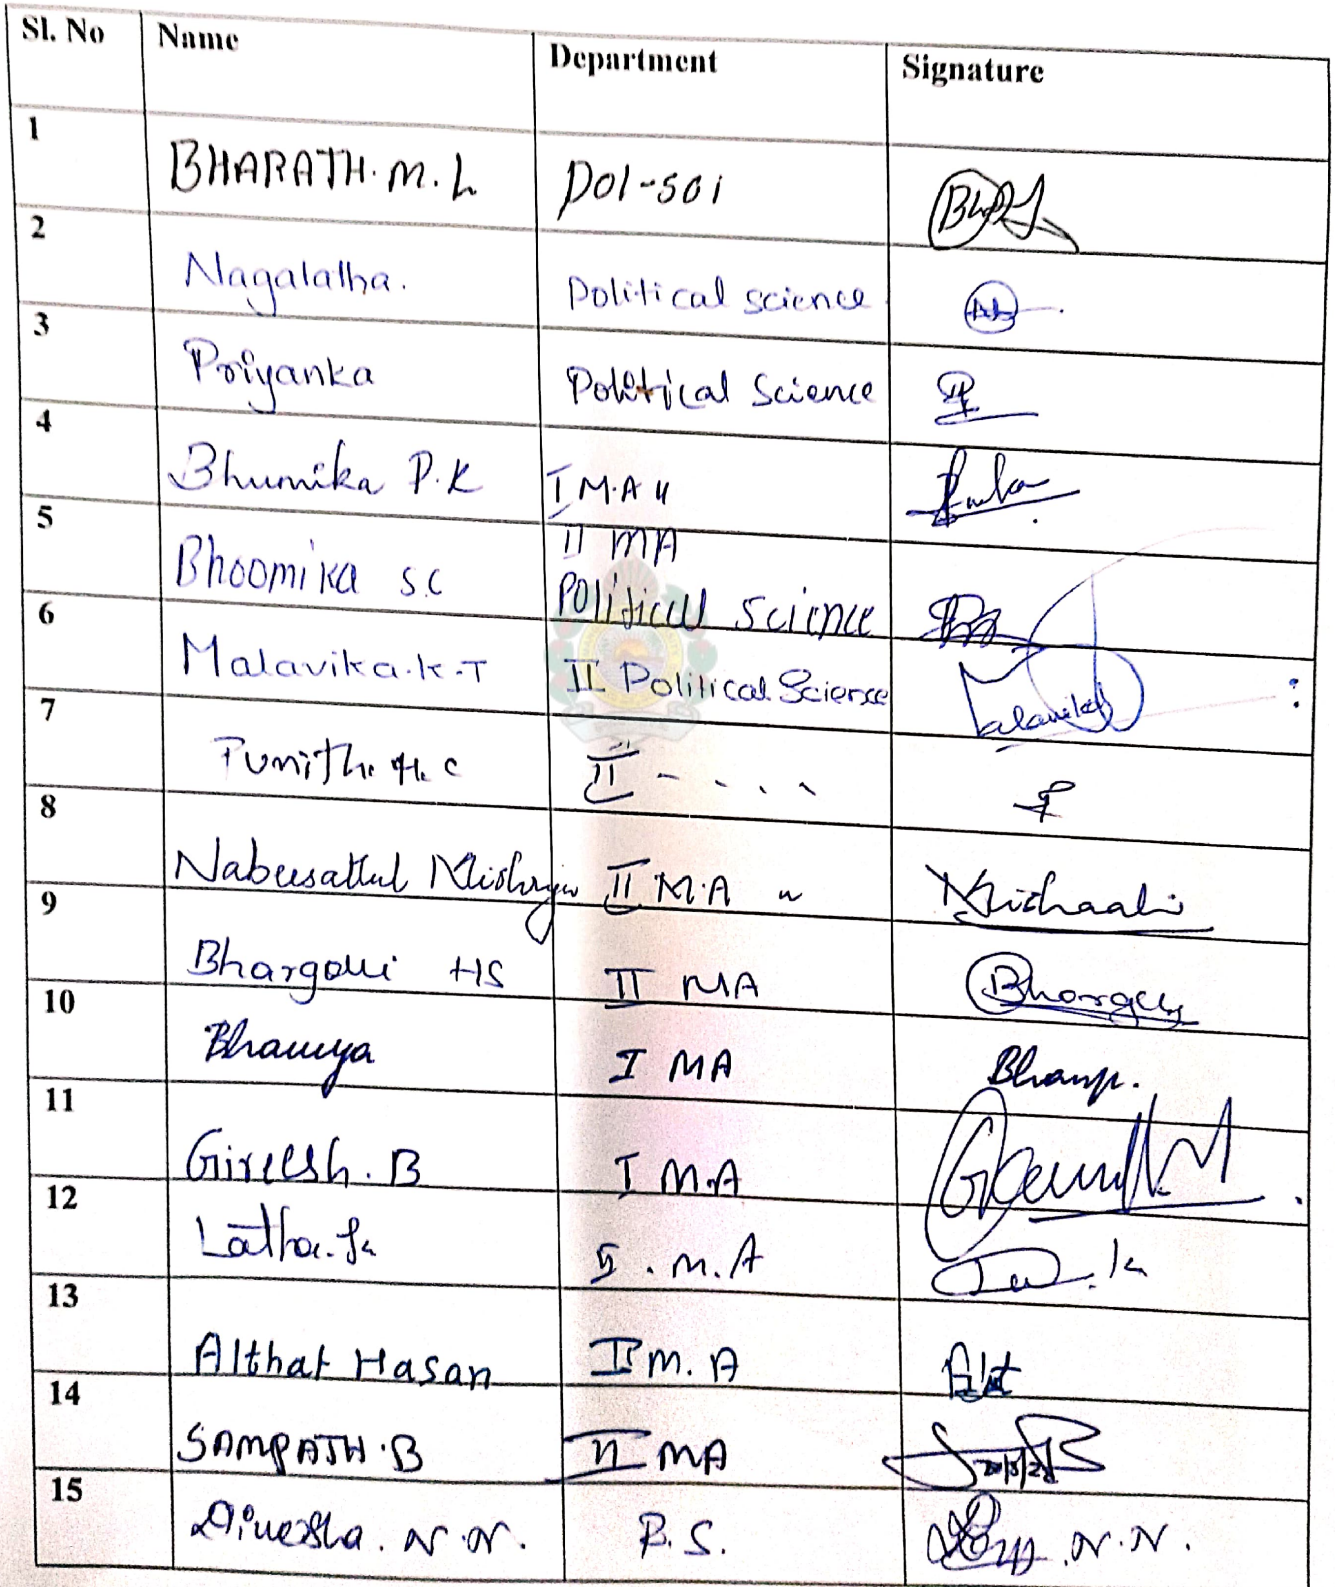 Sl. No Name Department Signature
1 BHARATH. M. L Pol-sci
2 Nagalatha. Political science
3 Priyanka Political Science
4 Bhumika P.K I M.A "
5 Bhoomika S.C II MA
Political Science
6 Malavika.K.T II Political Science Malavika
7 Punith. H. C II - . . .
8 Nabeesattul II M.A "
9 Bhargavi HS II MA Bhargavi
10 Bhavya I MA Bhavya.
11 Gireesh. B I M.A
12 Latha. M.A
13 Althaf Hasan M. A Alt
14 SAMPATH.B II MA
15 Dinesha. N.N. P.S. N.N.